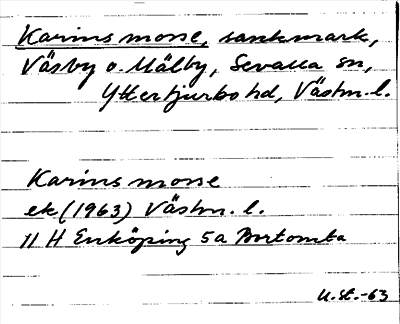 Karins mosse, sankmark,
Väsby o. Målby, Sevalla sn,
Yttertjurbo hd, Västm. l.
Karins mosse
ek (1963) Västm. l.
11 H Enköping 5a Bortomta
U.st.-63